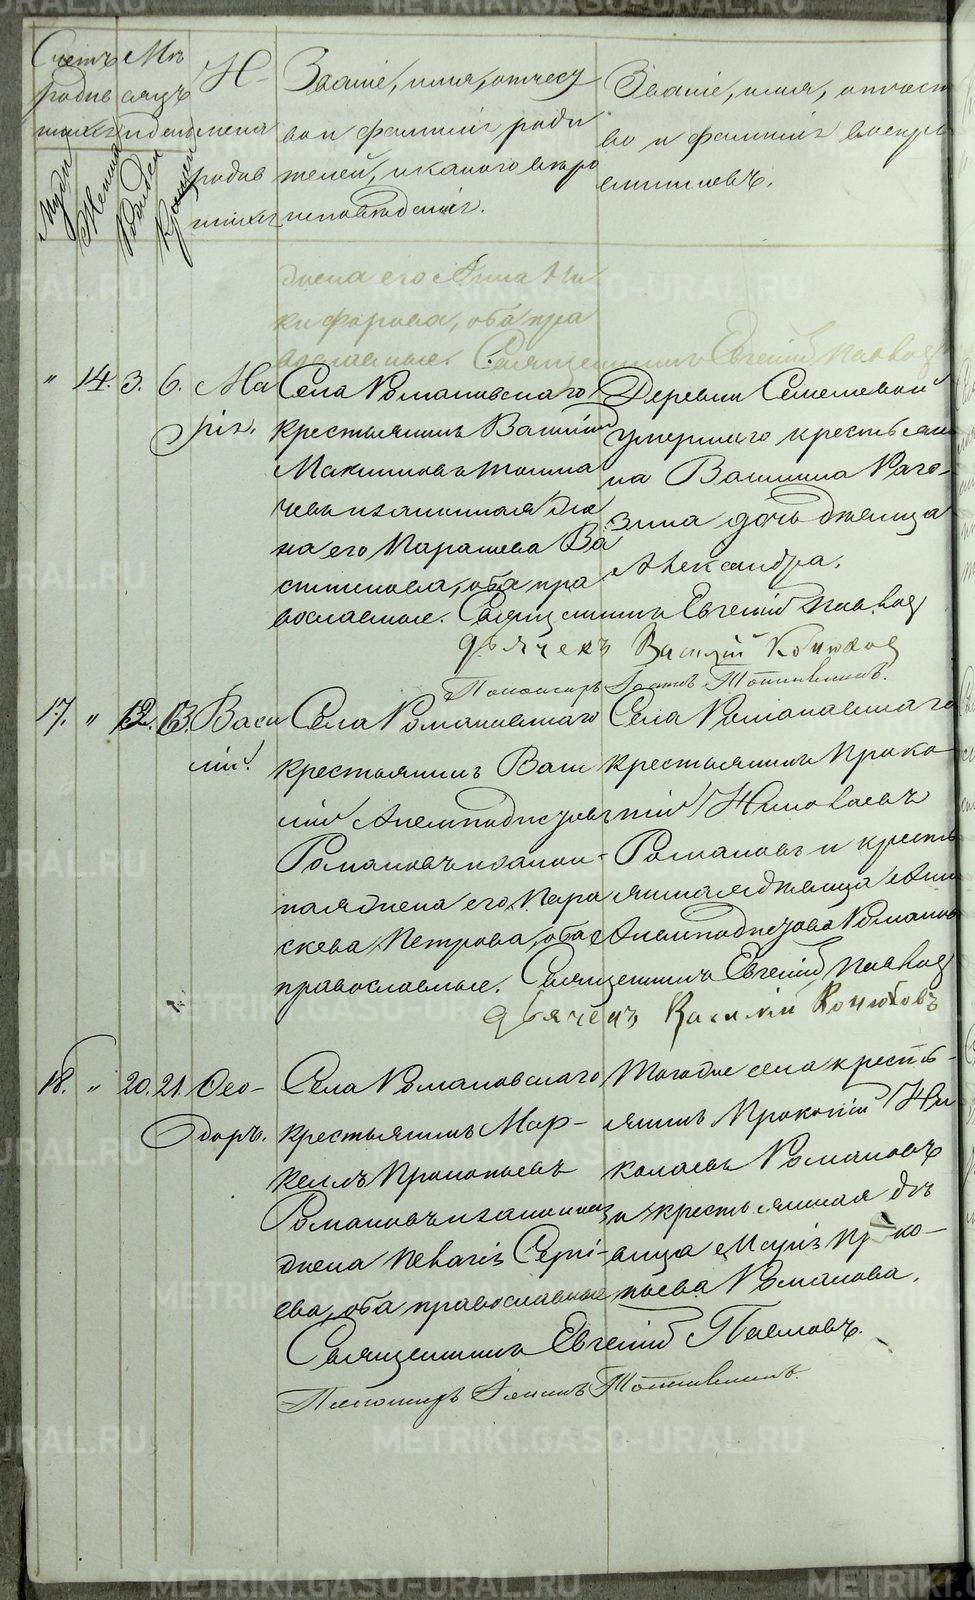 Счетъ родив шихся
Мѣ сяцъ и день
И- мена родив шихся
Званіе, имя, отчест во и фамилія роди телей, и какого вѣро исповѣданія.
Званіе, имя, отчест во и фамилія воспрі емниковъ.
Муж Женска Рожден Крещен
жена его Анна Ни
кифорова, оба пра
вославные. Священникъ Евгеній Павлов
" 14. 3. 6. Ма
рія.
Села Романовскаго
крестьянинъ Василій
Максимовъ
чевъ и законная же
на его Параскева Ва
сильева, оба пра
вославные.
Деревни
умершаго крестьяни
на Василия Раго-
зина дочь девица
Александра.
Священникъ Евгеній Павлов
дьячекъ Василій Конюхов
Пономарь
17. " 12. 13. Васи
лій.
Села Романовскаго
крестьянинъ Васи
лій Анемподистовъ
Романовъ и закон-
ная жена его Пара
скева Петрова, оба
православные.
Села Романовскаго
крестьянинъ Проко
пій Николаевъ
Романовъ и кресть
янская девица Анн
Анемподистова Романов
Священникъ Евгеній Павлов
дьячекъ Василій Конюховъ
18. " 20. 21. Ѳео-
доръ.
Села Романовскаго
крестьянинъ Мар-
келлъ Прокопьевъ
Романовъ и законная
жена Пелагія Сергі-
ева, оба православные
Тогоже села кресть-
янинъ Прокопій Ни
колаевъ Романовъ
и крестьянская дѣ
вица Марія Проко-
пьева Романова.
Священникъ Евгеній Павловъ.
Пономарь
METRIKI.GASO-URAL.RU